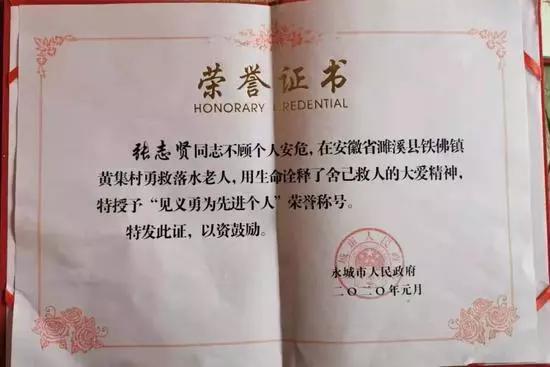 荣誉证书
HONORARY CREDENTIAL
张志贤同志不顾个人安危，在安徽省濉溪县铁佛镇
黄集村勇救落水老人，用生命诠释了舍己救人的大爱精神，
特授予“见义勇为先进个人”荣誉称号。
特发此证，以资鼓励。
永城市人民政府
二〇二〇年元月